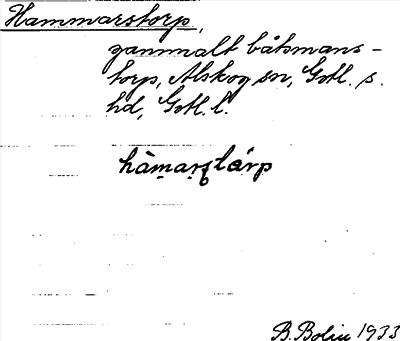 Hammarstorp,
gammalt båtsmans-
torp, Alskog sn, Gotl. s.
hd, Gotl. l.
B. Bolin 1933